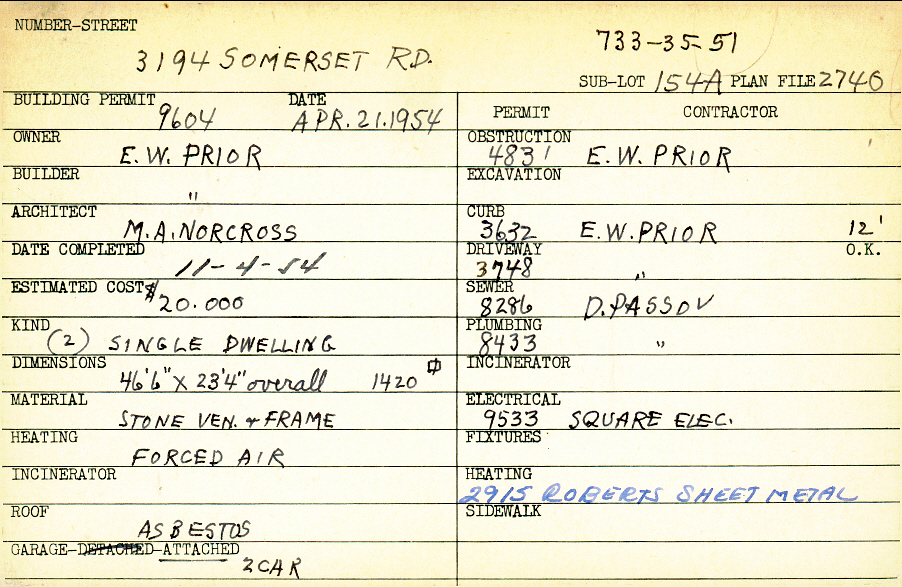 NUMBER-STREET
3194 SOMERSET RD.
733-35-51
SUB-LOT 154A PLAN FILE 2740
BUILDING PERMIT DATE
9604 APR. 21. 1954
OWNER
E.W. PRIOR
BUILDER
"
ARCHITECT
M.A. NORCROSS
DATE COMPLETED
11-4-54
ESTIMATED COST $
20.000
KIND
(2) SINGLE DWELLING
DIMENSIONS
46'6" X 23'4" overall 1420
MATERIAL
STONE VEN. + FRAME
HEATING
FORCED AIR
INCINERATOR
ROOF
ASBESTOS
GARAGE-DETACHED-ATTACHED
2 CAR
PERMIT CONTRACTOR
OBSTRUCTION
4831 E.W. PRIOR
EXCAVATION
CURB
3632 E.W. PRIOR 12'
DRIVEWAY O.K.
3748 "
SEWER
8286 D. PASSOV
PLUMBING
8433 "
INCINERATOR
ELECTRICAL
9533 SQUARE ELEC.
FIXTURES
HEATING
2915 ROBERTS SHEET METAL
SIDEWALK